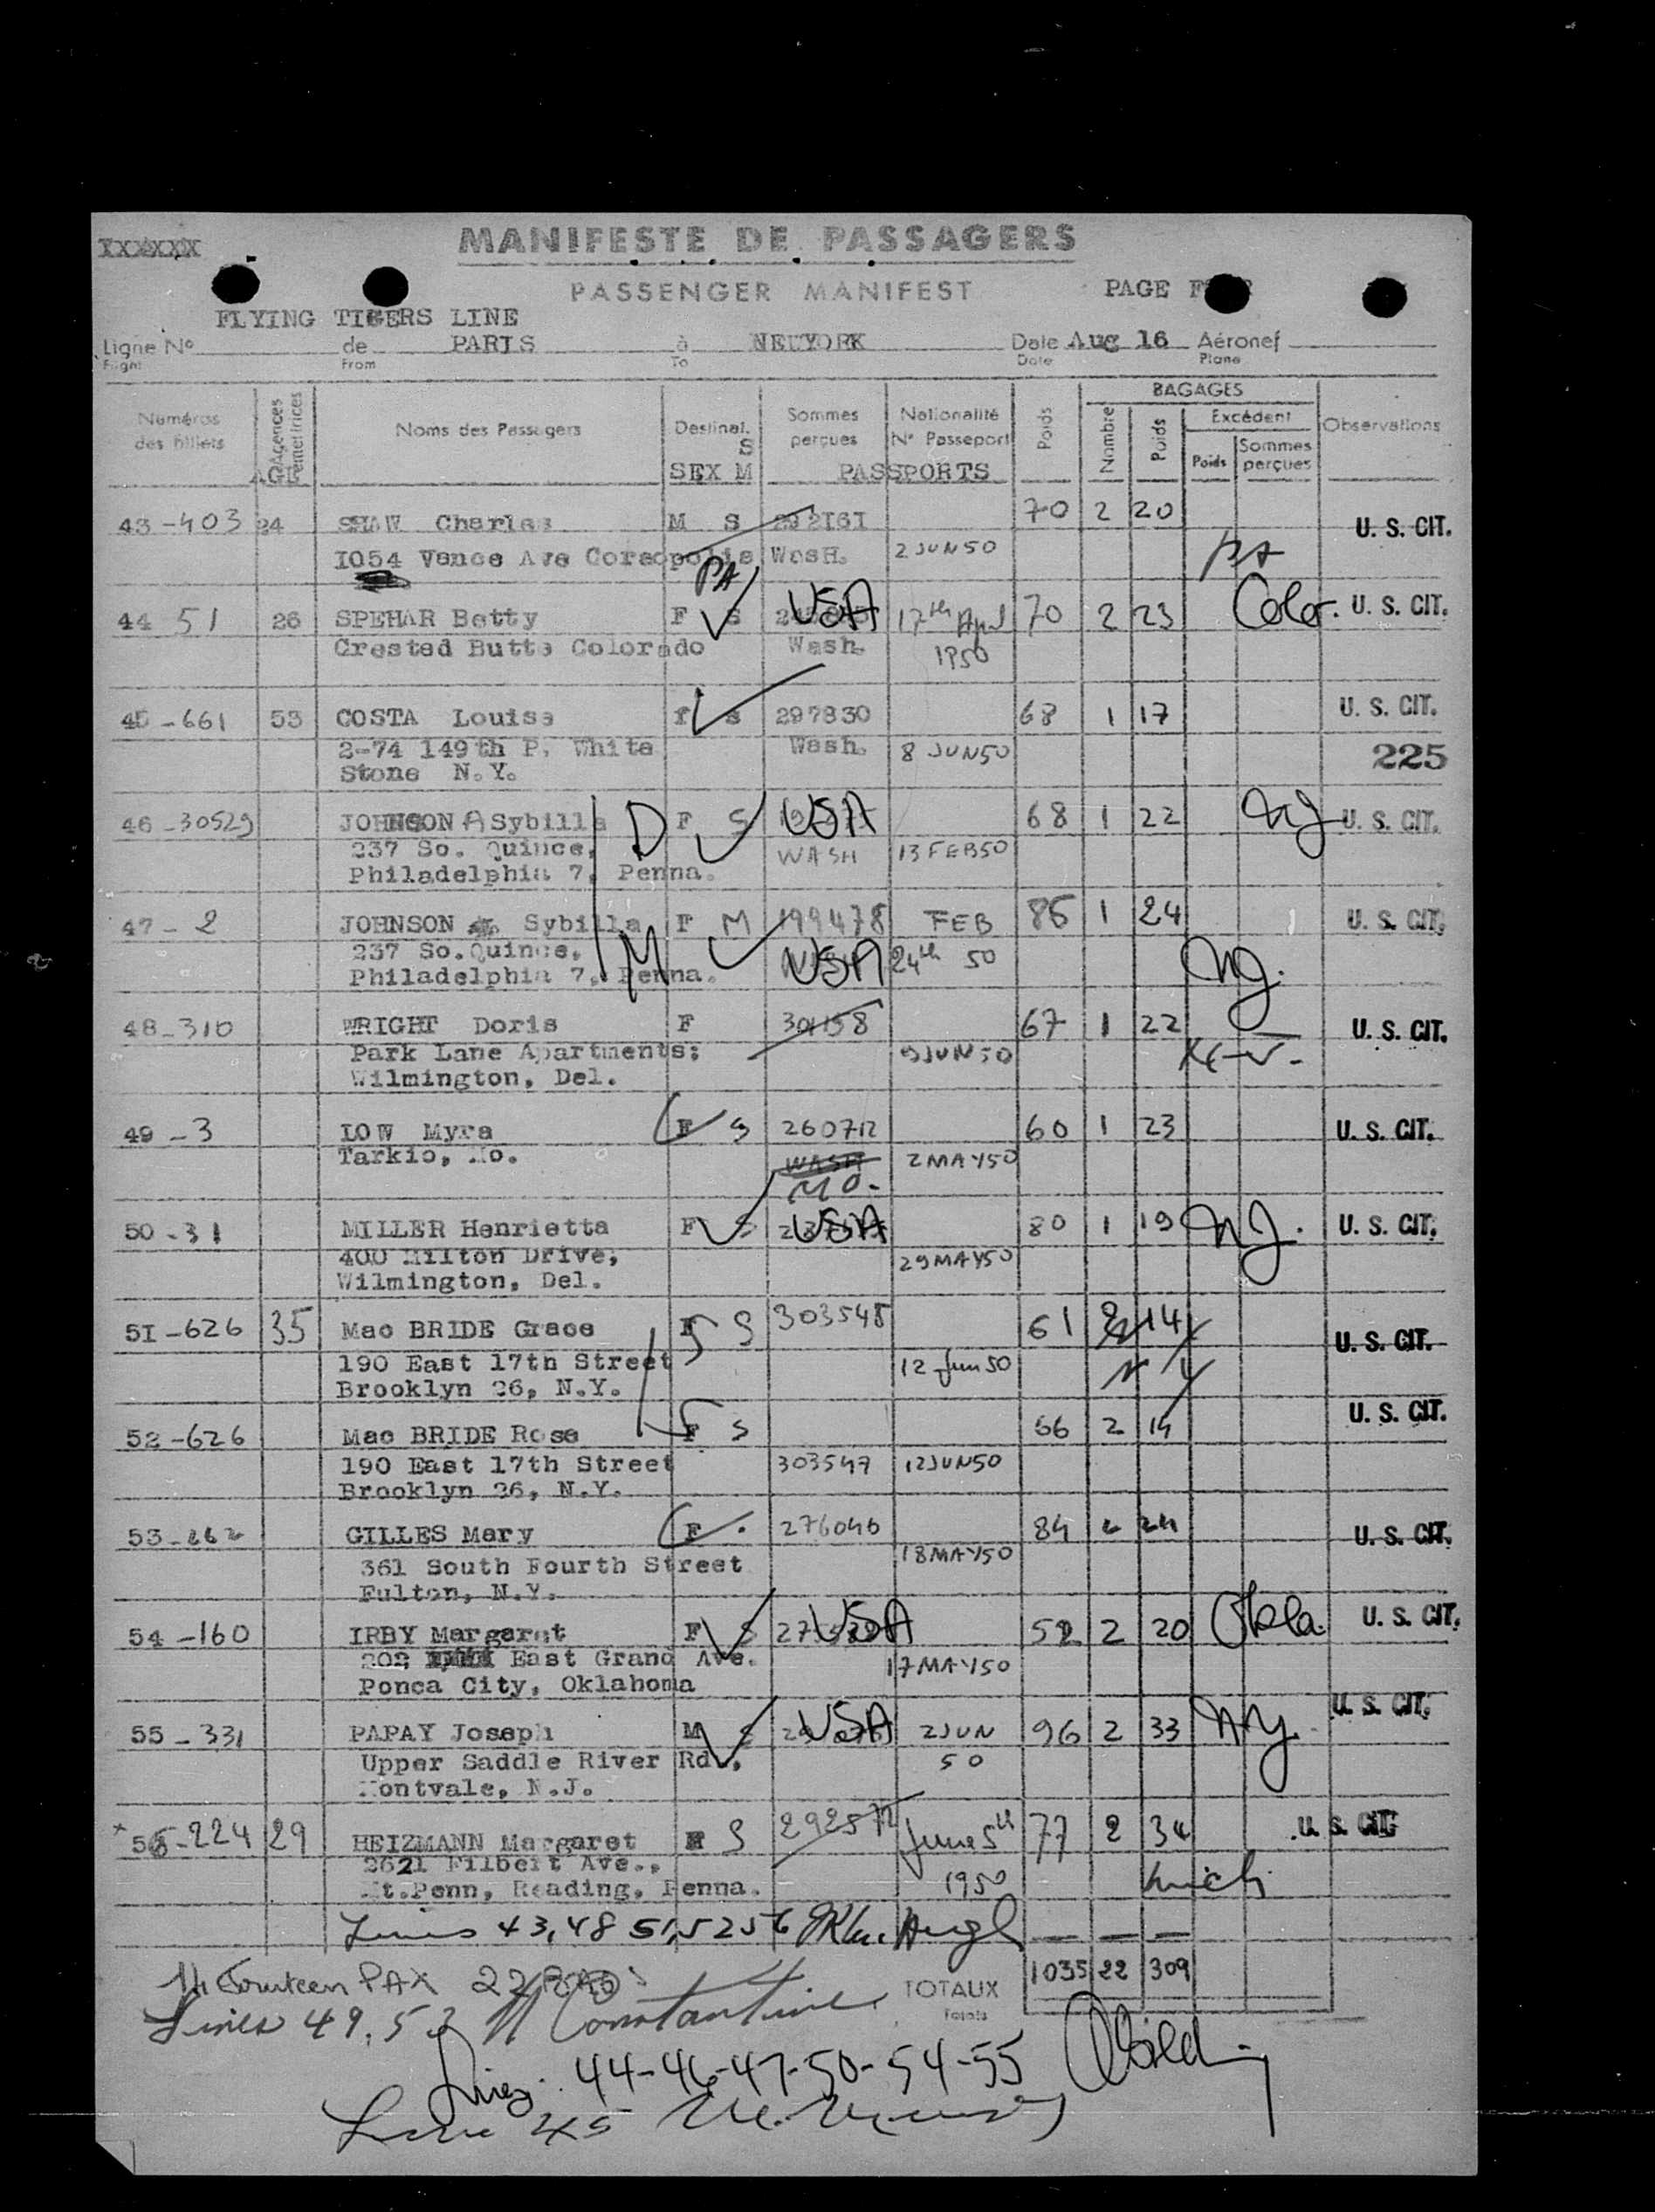 XXXXXX
MANIFESTE DE PASSAGERS
PASSENGER MANIFEST PAGE
FLYING TIGERS LINE
Ligne No de PARIS à NEWYORK Date Aug 16 Aéronef
Flight From To Date Plane
BAGAGES
Numéros des billets Agences émettrices Noms des Passagers Destinat. Sommes perçues Nationalité No Passeport Poids Nombre Poids Excédent Observations
Poids Sommes perçues
AGE SEX S M PASSPORTS
43 -403 24 SHAW Charles M S 292161 70 2 20 U. S. CIT.
1054 Vance Ave Coraopolis WasH. 2 JUN 50
PA
44 51 26 SPEHAR Betty F S USA 17th Apl 70 2 23 Color. U. S. CIT.
Crested Butte Colorado Wash. 1950
45 -661 53 COSTA Louise f s 297830 68 1 17 U. S. CIT.
2-74 149th P. White Wash. 8 JUN50 225
Stone N.Y.
46 -30529 JOHNSON A Sybilla D F S USA 68 1 22 NJ U. S. CIT.
237 So. Quince, WASH 13 FEB50
Philadelphia 7, Penna.
47 - 2 JOHNSON Sybilla F M 199478 FEB 86 1 24 U. S. CIT.
237 So.Quince, M USA 24th 50
Philadelphia 7, Penna. NJ.
48 -310 WRIGHT Doris F 301158 67 1 22 U. S. CIT.
Park Lane Apartments; 9JUN50
Wilmington, Del.
49 -3 LOW Myra F S 260712 60 1 23 U. S. CIT.
Tarkio, Mo. WASH 2 MAY50
MO.
50 -31 MILLER Henrietta F S USA 80 1 19 NJ. U. S. CIT.
400 Milton Drive, 29MAY50
Wilmington, Del.
51 -626 35 Mac BRIDE Grace F S 303548 61 2 14 U. S. CIT.
190 East 17th Street 12 Jun 50 N Y
Brooklyn 26, N.Y.
52 -626 Mac BRIDE Rose F S 56 2 14 U. S. CIT.
190 East 17th Street 303547 12JUN50
Brooklyn 26, N.Y.
53 -262 GILLES Mary F 276046 84 2 24 U. S. CIT.
361 South Fourth Street 18MAY50
Fulton, N.Y.
54 -160 IRBY Margaret F S USA 52 2 20 Okla. U. S. CIT.
202 East Grand Ave. 17MAY50
Ponca City, Oklahoma
55 - 331 PAPAY Joseph M S USA 2JUN 96 2 33 NY. U. S. CIT.
Upper Saddle River Rd., 50
Montvale, N.J.
56 -224 29 HEIZMANN Margaret F S 292572 June 5th 77 2 34 U. S. CIT.
2621 Filbert Ave., 1950 Mich
Mt.Penn, Reading, Penna.
Lines 43, 48 51, 52 56
TOTAUX 1035 22 309
Totals
14 Fourteen PAX 22
Lines 49, 53 Constantine
Lines 44-46-47-50-54-55
Line 45